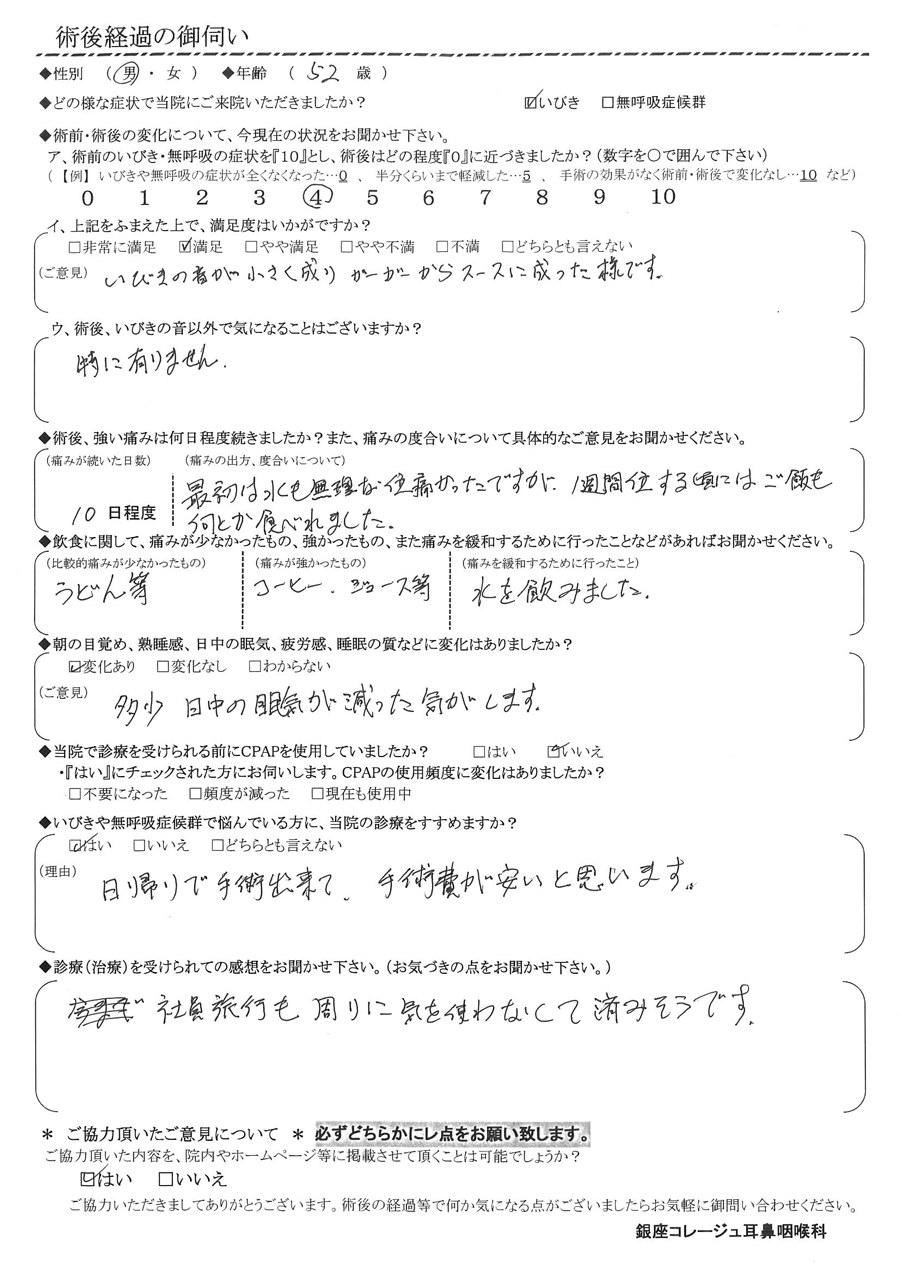 術後経過の御伺い
◆性別 (男・女) ◆年齢 (52 歳)
◆どの様な症状で当院にご来院いただきましたか? ☑いびき □無呼吸症候群
◆術前・術後の変化について、今現在の状況をお聞かせ下さい。
ア、術前のいびき・無呼吸の症状を『10』とし、術後はどの程度『0』に近づきましたか?(数字を○で囲んで下さい)
(【例】いびきや無呼吸の症状が全くなくなった…0 、 半分くらいまで軽減した…5 、 手術の効果がなく術前・術後で変化なし…10 など)
0 1 2 3 ④ 5 6 7 8 9 10
イ、上記をふまえた上で、満足度はいかがですか?
□非常に満足 ☑満足 □やや満足 □やや不満 □不満 □どちらとも言えない
(ご意見) いびきの音が小さく成り ガーガーからスースに成った様です。
ウ、術後、いびきの音以外で気になることはございますか?
特に有りません.
◆術後、強い痛みは何日程度続きましたか?また、痛みの度合いについて具体的なご意見をお聞かせください。
(痛みが続いた日数) (痛みの出方、度合いについて)
最初は水も無理な位痛かったですが、1週間位する頃にはご飯も
10 日程度 何とか食べれました。
◆飲食に関して、痛みが少なかったもの、強かったもの、また痛みを緩和するために行ったことなどがあればお聞かせください。
(比較的痛みが少なかったもの) (痛みが強かったもの) (痛みを緩和するために行ったこと)
うどん等 コーヒー、ジュース等 水を飲みました.
◆朝の目覚め、熟睡感、日中の眠気、疲労感、睡眠の質などに変化はありましたか?
☑変化あり □変化なし □わからない
(ご意見) 多少 日中の眠気が減った気がします。
◆当院で診療を受けられる前にCPAPを使用していましたか? □はい ☑いいえ
・『はい』にチェックされた方にお伺いします。CPAPの使用頻度に変化はありましたか?
□不要になった □頻度が減った □現在も使用中
◆いびきや無呼吸症候群で悩んでいる方に、当院の診療をすすめますか?
☑はい □いいえ □どちらとも言えない
(理由) 日帰りで手術出来て、手術費が安いと思います。
◆診療(治療)を受けられての感想をお聞かせ下さい。(お気づきの点をお聞かせ下さい。)
社員旅行も周りに気を使わなくて済みそうです。
* ご協力頂いたご意見について * 必ずどちらかにレ点をお願い致します。
ご協力頂いた内容を、院内やホームページ等に掲載させて頂くことは可能でしょうか?
☑はい □いいえ
ご協力いただきましてありがとうございます。術後の経過等で何か気になる点がございましたらお気軽に御問い合わせください。
銀座コレージュ耳鼻咽喉科